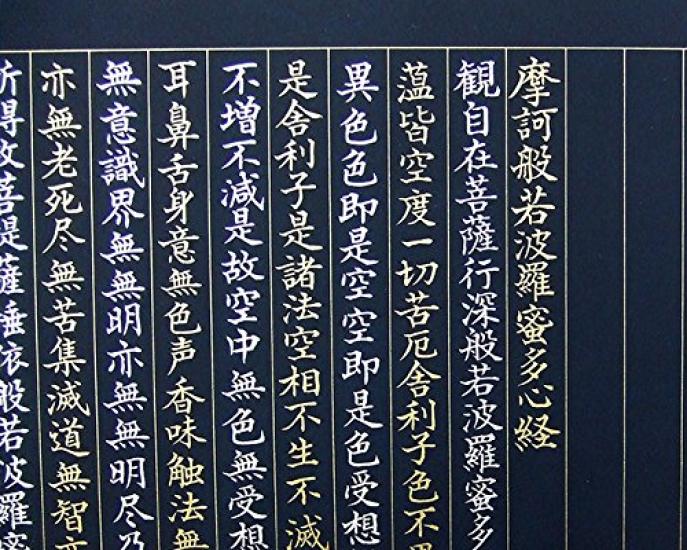 摩訶般若波羅蜜多心経
観自在菩薩行深般若波羅蜜多
薀皆空度一切苦厄舎利子色不異
異色色即是空空即是色受想
是舎利子是諸法空相不生不滅
不増不減是故空中無色無受想
耳鼻舌身意無色声香味触法無
無意識界無無明亦無無明尽乃
亦無老死尽無苦集滅道無智亦
所得故菩提薩埵依般若波羅蜜